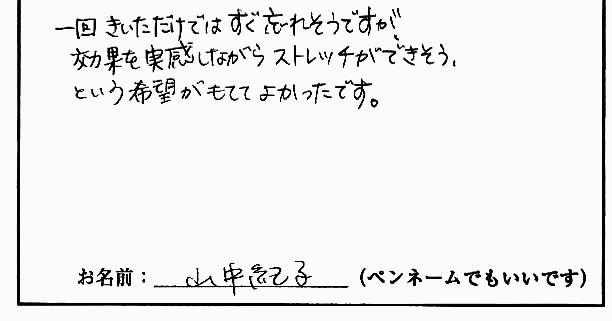 一回きいただけではすぐ忘れそうですが、
効果を実感しながらストレッチができそう、
という希望がもててよかったです。
お名前：山中紀子（ペンネームでもいいです）